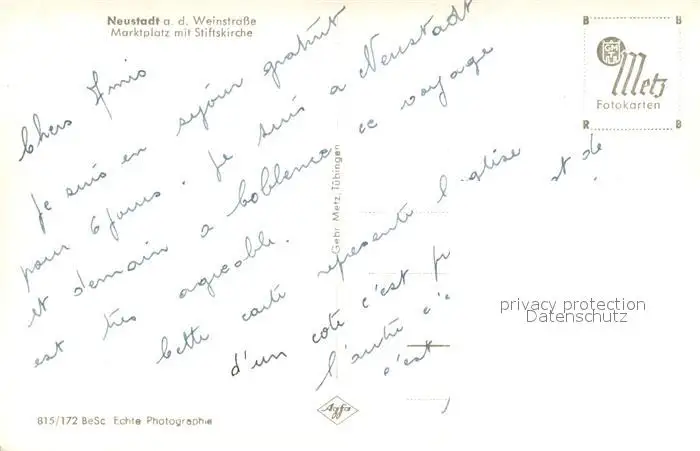 Neustadt a. d. Weinstraße
Marktplatz mit Stiftskirche
B B
GM
Metz
Fotokarten
R B
Chers Amis
je suis en sejour gratuit
pour 6 jours. Je suis a Neustadt
et demain a Coblence ce voyage
est très agréable.
Cette carte represente l'eglise et de
d'un coté c'est pr
l'autre c'e
c'est
Gebr. Metz, Tübingen
privacy protection
Datenschutz
815/172 BeSc. Echte Photographie
Agfa